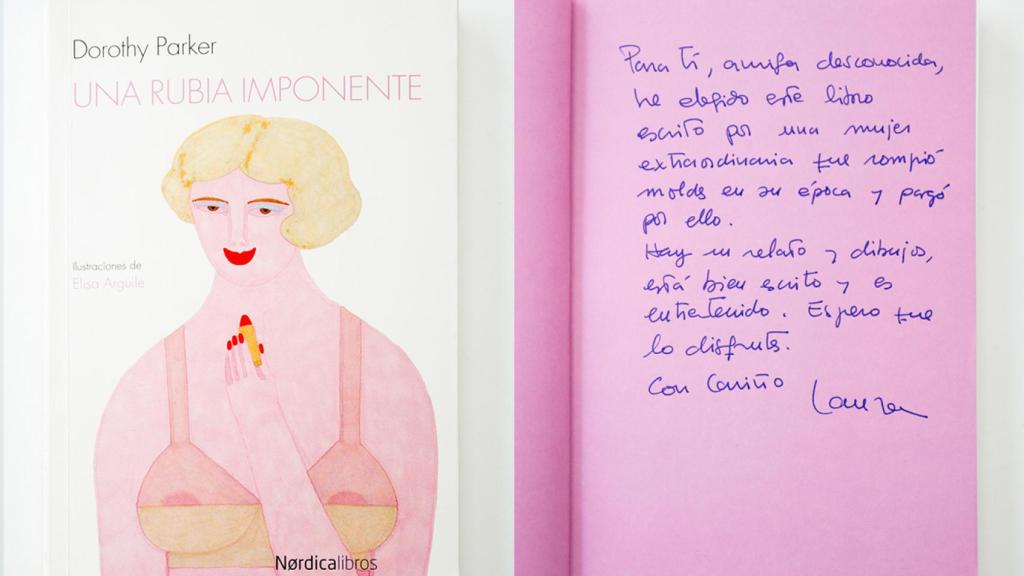 Dorothy Parker
UNA RUBIA IMPONENTE
Ilustraciones de
Elisa Arguilé
Nørdicalibros
Para ti, amiga desconocida,
he elegido este libro
escrito por una mujer
extraordinaria que rompió
moldes en su época y pagó
por ello.
Hay un relato y dibujos,
está bien escrito y es
entretenido. Espero que
lo disfrutes.
Con Cariño